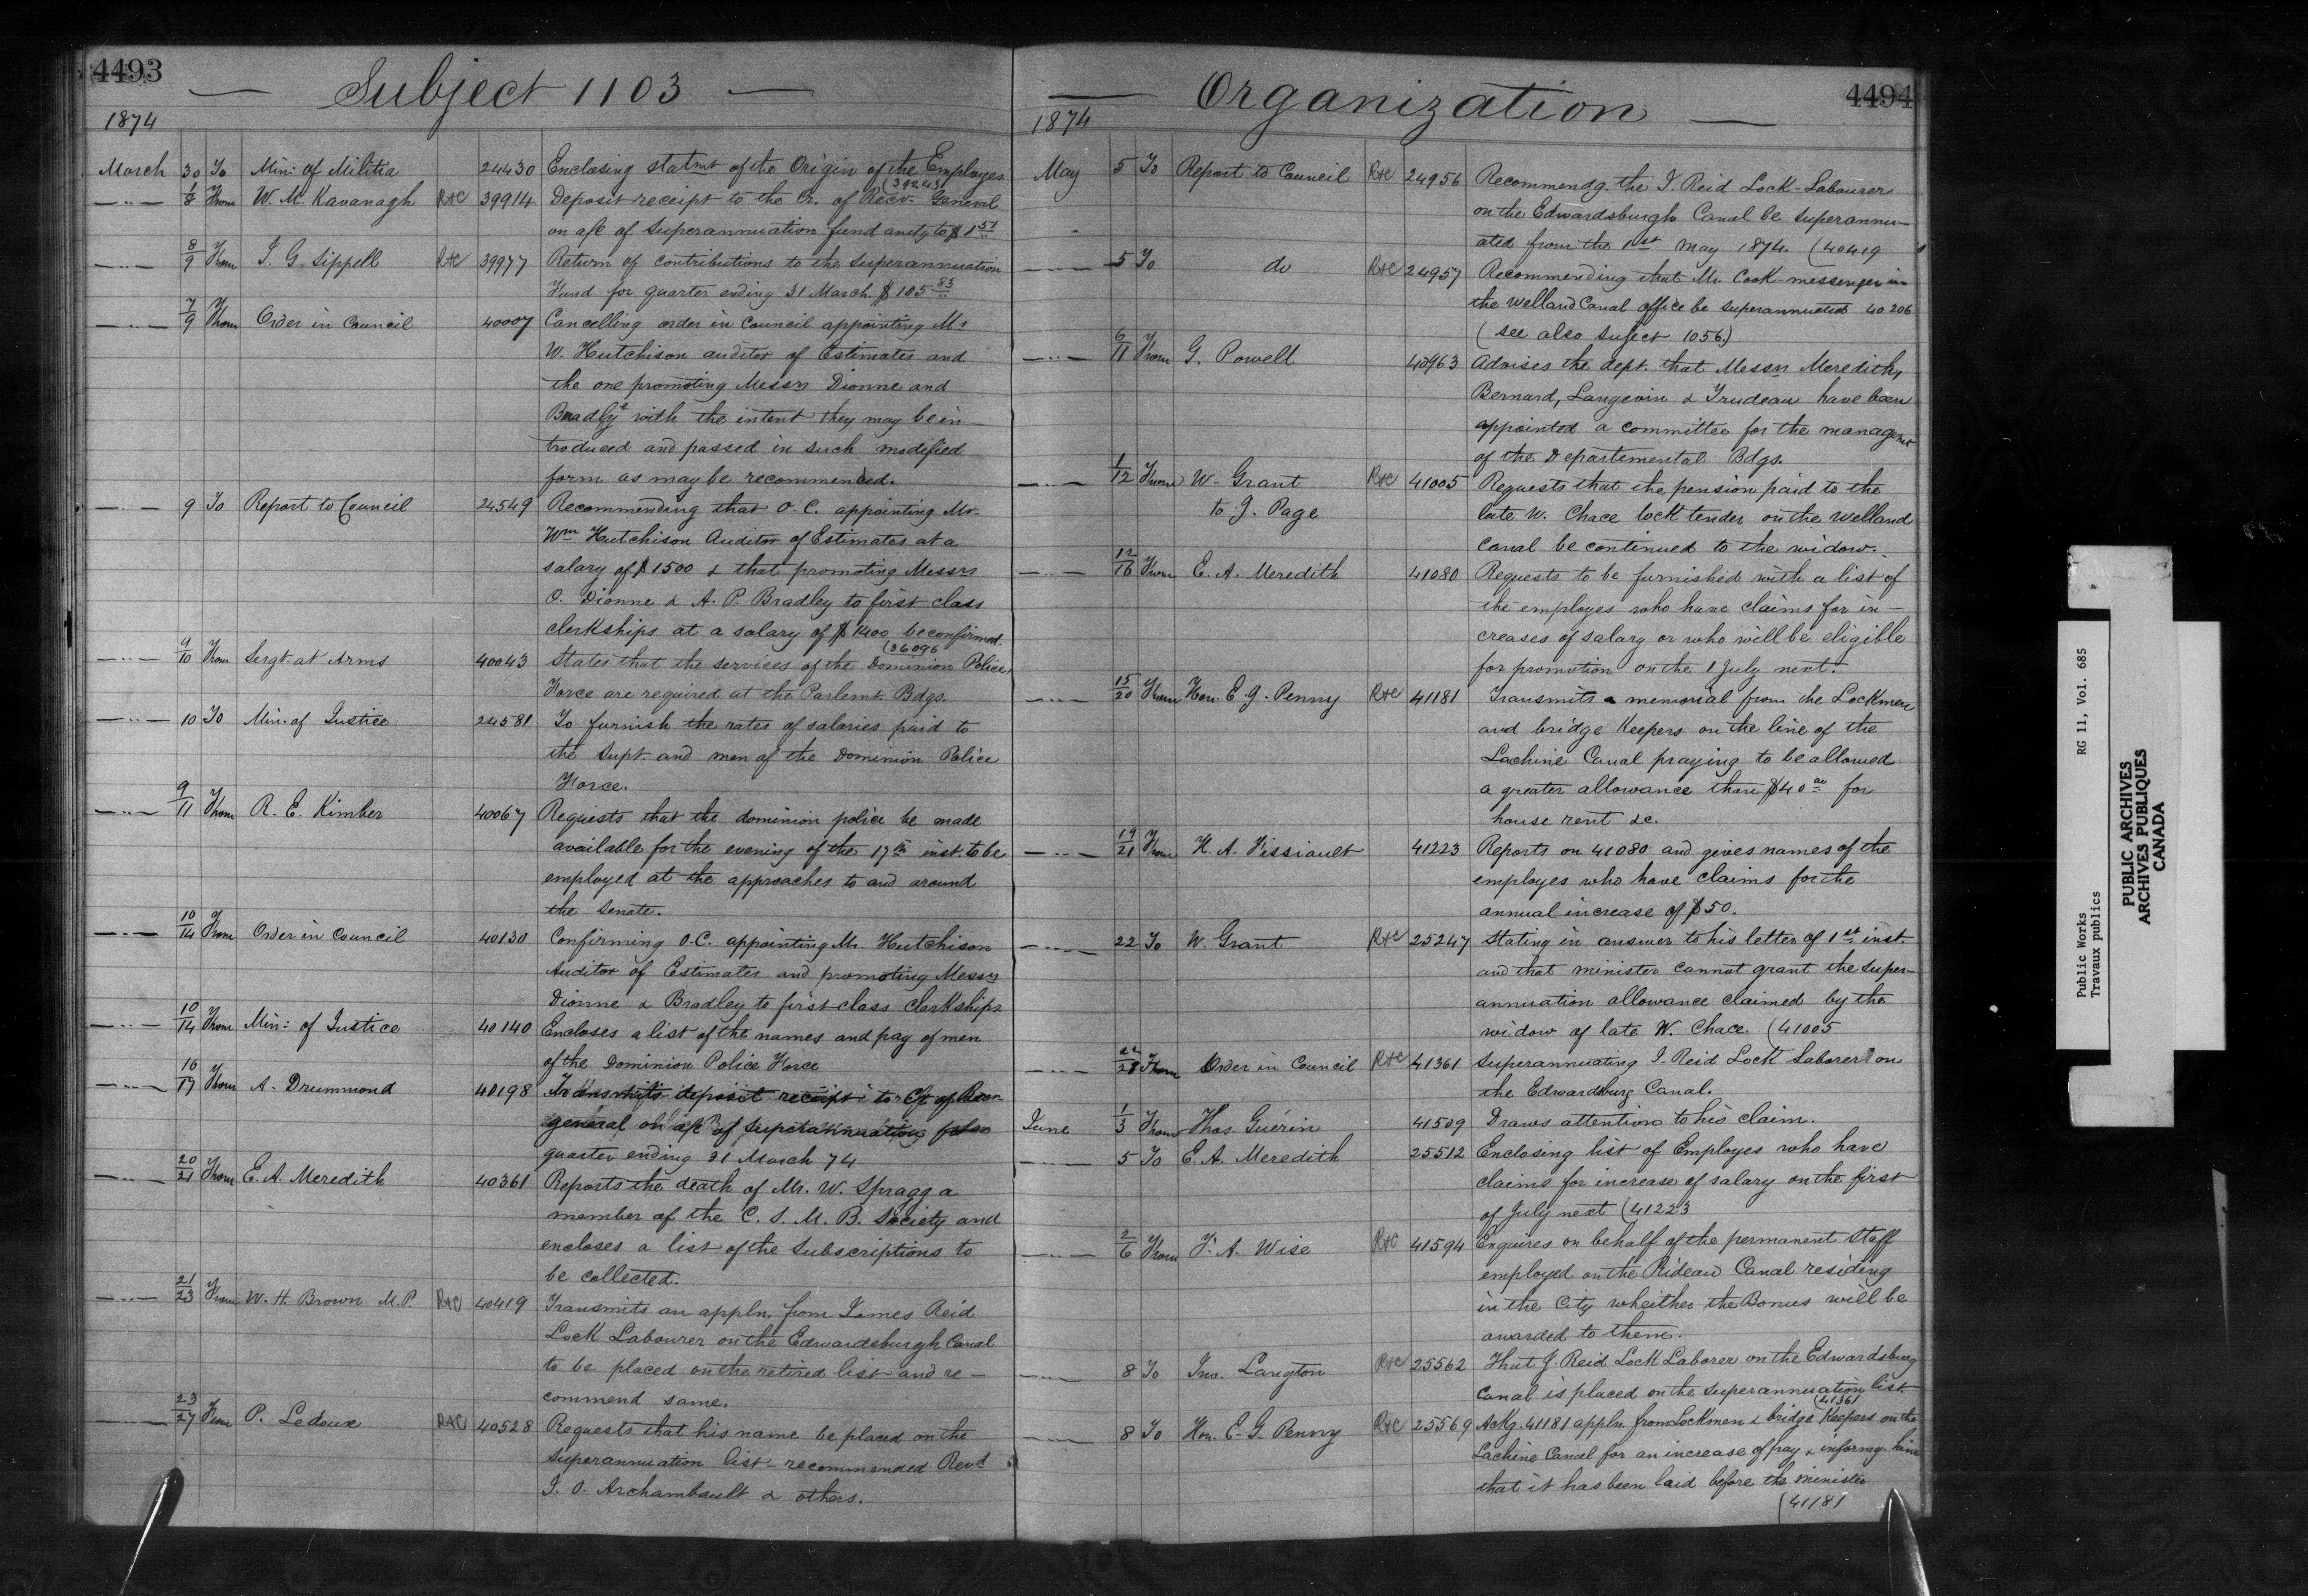 4493
Subject 1103
1874
March 30 To Min: of Militia 24430 Enclosing statmt of the Origin of the Employes
(39243
1/8 From W. M. Kavanagh R&C 39914 Deposit receipt to the Cr. of Recv. General
on a/c of Superannuation fund amtg to $1 51
8/9 From J. G. Sippell R&C 39977 Return of contributions to the Superannuation
Fund for quarter ending 31 March. $105 83
7/9 From Order in Council 40007 Cancelling order in Council appointing Mr
W. Hutchison auditor of Estimates and
the one promoting Messrs Dionne and
Bradley with the intent they may be in-
troduced and passed in such modified
form as may be recommended.
9 To Report to Council 24549 Recommending that O.C. appointing Mr.
Wm Hutchison Auditor of Estimates at a
salary of $1500 & that promoting Messrs
O. Dionne & A. P. Bradley to first class
clerkships at a salary of $1400 be confirmed.
(36096
9/10 From Sergt at Arms 40043 States that the services of the Dominion Police
Force are required at the Parlemt. Bdgs.
10 To Min. of Justice 24581 To furnish the rates of salaries paid to
the Supt. and men of the Dominion Police
Force.
9/11 From R. E. Kimber 40067 Requests that the dominion police be made
available for the evening of the 17th inst. to be
employed at the approaches to and around
the Senate.
10/14 From Order in Council 40130 Confirming O.C. appointing Mr. Hutchison
Auditor of Estimates and promoting Messrs
Dionne & Bradley to first class Clerkships.
10/14 From Min: of Justice 40140 Encloses a list of the names and pay of men
of the Dominion Police Force
16/17 From A. Drummond 40198 Transmits deposit receipt to Cr of Recv
general on a/c of superannuation
quarter ending 31 March 74
20/21 From E. A. Meredith 40361 Reports the death of Mr. W. Spragg a
member of the C. S. M. B. Society and
encloses a list of the Subscriptions to
be collected.
21/23 From W. H. Brown M.P. R&C 40419 Transmits an appln. from James Reid
Lock Labourer on the Edwardsburgh Canal
to be placed on the retired list and re-
commend same.
23/27 From P. Ledoux R&C 40528 Requests that his name be placed on the
Superannuation list - recommended Revd
J. O. Archambault & others.
4494
Organization
1874
May 5 To Report to Council R&C 24956 Recommendg. the J. Reid Lock-Labourer
on the Edwardsburgh Canal be superannu-
ated from the 1st May 1874. (40419
5 To do R&C 24957 Recommending that Mr. Cook messenger in
the Welland Canal office be superannuated 40206
(see also Suject 1056)
6/11 From G. Powell 40963 Advises the dept. that Messrs Meredith,
Bernard, Langevin & Trudeau have been
appointed a committee for the managemt
of the Departemental Bdgs.
1/12 From W. Grant R&C 41005 Requests that the pension paid to the
to J. Page late W. Chace lock tender on the Welland
Canal be continued to the widow.
12/16 From E. A. Meredith 41080 Requests to be furnished with a list of
the employes who have claims for in-
creases of salary or who will be eligible
for promotion on the 1 July next.
15/20 From Hon. E. G. Penny R&C 41181 Transmits a memorial from the Lockmen
and bridge Keepers on the line of the
Lachine Canal praying to be allowed
a greater allowance than $40 00 for
house rent &c.
19/21 From H. A. Fissiault 41223 Reports on 41080 and gives names of the
employes who have claims for the
annual increase of $50.
22 To W. Grant R&C 25247 Stating in answer to his letter of 1st inst.
and that minister cannot grant the super-
annuation allowance claimed by the
widow of late W. Chace. (41005
22/28 From Order in Council R&C 41361 Superannuating J. Reid Lock Laborer on
the Edwardsburg Canal.
June 1/3 From Thos. Guérin 41509 Draws attention to his claim.
5 To E. A. Meredith 25512 Enclosing list of Employes who have
claims for increase of salary on the first
of July next (41223
2/6 From F. A. Wise R&C 41594 Enquires on behalf of the permanent Staff
employed on the Rideau Canal residing
in the City wheither the Bonus will be
awarded to them.
8 To Jno. Langton R&C 25562 That J. Reid Lock Laborer on the Edwardsburg
Canal is placed on the superannuation list.
(41361
8 To Hon. E. G. Penny R&C 25569 Ackg. 41181 appln. from Lockmen & bridge Keepers on the
Lachine Canal for an increase of pay & informg. him
that it has been laid before the minister
(41181
Public Works RG 11, Vol. 685
Travaux publics
PUBLIC ARCHIVES
ARCHIVES PUBLIQUES
CANADA